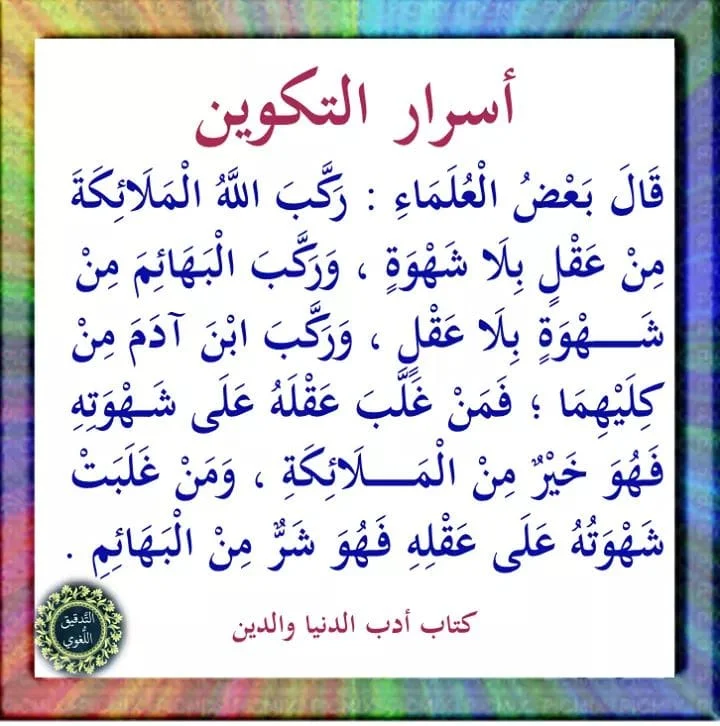 أسرار التكوين
قَالَ بَعْضُ الْعُلَمَاءِ : رَكَّبَ اللَّهُ الْمَلَائِكَةَ
مِنْ عَقْلٍ بِلَا شَهْوَةٍ ، وَرَكَّبَ الْبَهَائِمَ مِنْ
شَـــهْوَةٍ بِلَا عَقْلٍ ، وَرَكَّبَ ابْنَ آدَمَ مِنْ
كِلَيْهِمَا ؛ فَمَنْ غَلَّبَ عَقْلَهُ عَلَى شَـهْوَتِهِ
فَهُوَ خَيْرٌ مِنْ الْمَـــلَائِكَةِ ، وَمَنْ غَلَبَتْ
شَهْوَتُهُ عَلَى عَقْلِهِ فَهُوَ شَرٌّ مِنْ الْبَهَائِمِ .
كتاب أدب الدنيا والدين
التَّدقيق
اللُّغوي